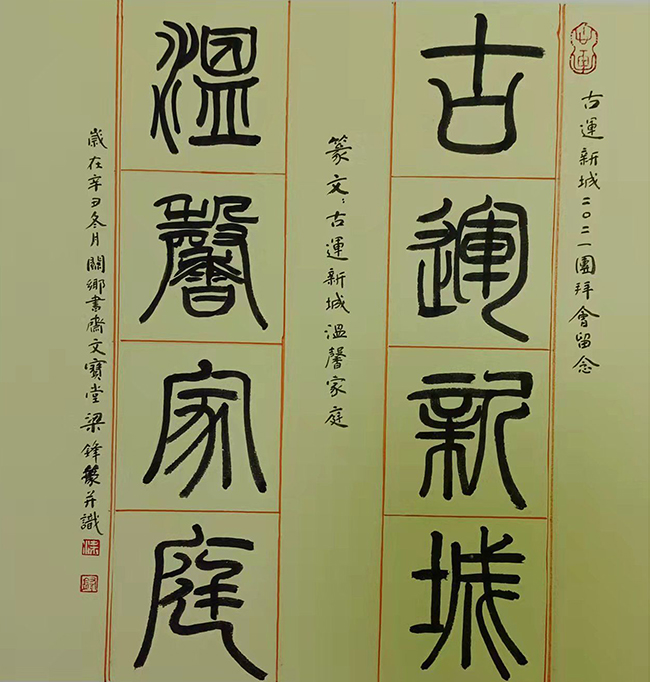 古運
古運新城二〇二一團拜會留念
古運新城
篆文：古運新城溫馨家庭
溫馨家庭
歲在辛丑冬月關鄉書齋文寶堂梁鋒篆并識